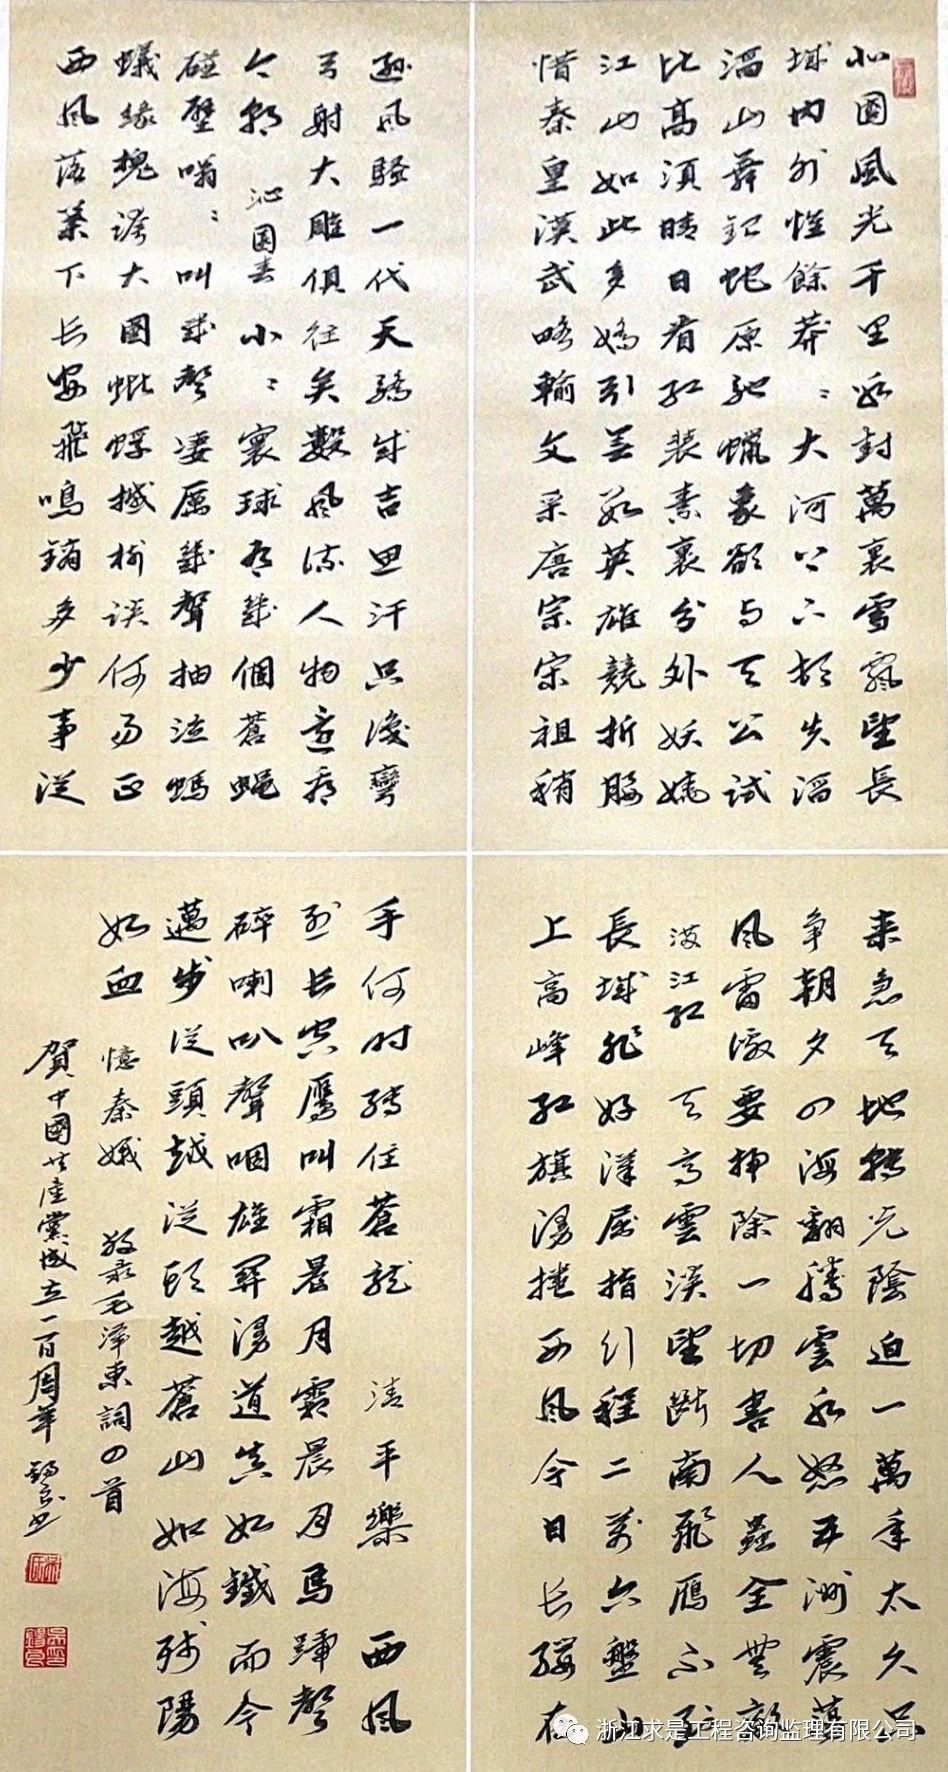 北國風光千里冰封萬裏雪飄望長
城内外惟餘莽〻大河上下頓失滔
滔山舞銀蛇原馳蠟象欲與天公試
比高須晴日看紅裝素裹分外妖嬈
江山如此多嬌引無數英雄競折腰
惜秦皇漢武略輸文采唐宗宋祖稍
遜風騷一代天驕成吉思汗只識彎
弓射大雕俱往矣數風流人物還看
今朝 沁園春 小〻寰球有幾個蒼蠅
碰壁嗡〻叫幾聲凄厲幾聲抽泣螞
蟻緣槐誇大國蚍蜉撼樹談何易正
西風落葉下長安飛鳴鏑多少事從
来急天地轉光陰迫一萬年太久只
争朝夕四海翻騰雲水怒五洲震蕩
風雷激要掃除一切害人蟲全無敵
滿江紅 天高雲淡望斷南飛雁不到
長城非好漢屈指行程二萬六盤山
上高峰紅旗漫捲西風今日長纓在
手何时縛住蒼龍 清平樂 西風
烈長空鷹叫霜晨月霜晨月馬蹄聲
碎喇叭聲咽雄關漫道真如鐵而今
邁步從頭越從頭越蒼山如海殘陽
如血 憶秦娥 敬录毛澤東詞四首
賀中國共產黨成立一百周年
浙江求是工程咨询监理有限公司